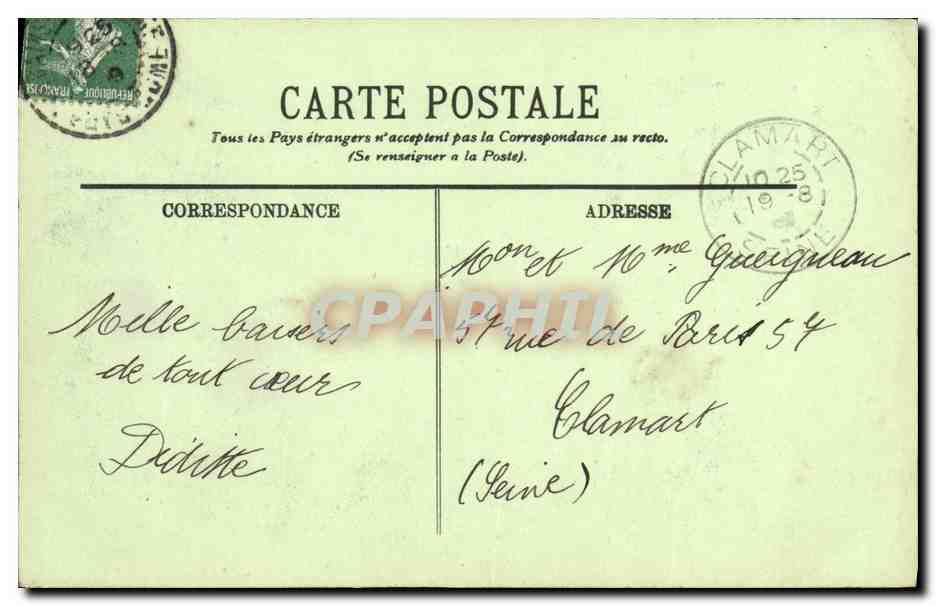 RÉPUBLIQUE FRANÇAISE
PUY DE DOME
CARTE POSTALE
Tous les Pays étrangers n'acceptent pas la Correspondance au recto.
(Se renseigner a la Poste).
CLAMART
10 25
19 - 8
SEINE
CORRESPONDANCE
ADRESSE
Mon et Mme Gueigneau
57 rue de Paris 57
Clamart
(Seine)
Mille baisers
de tout cœur
Diditte
CPARHII